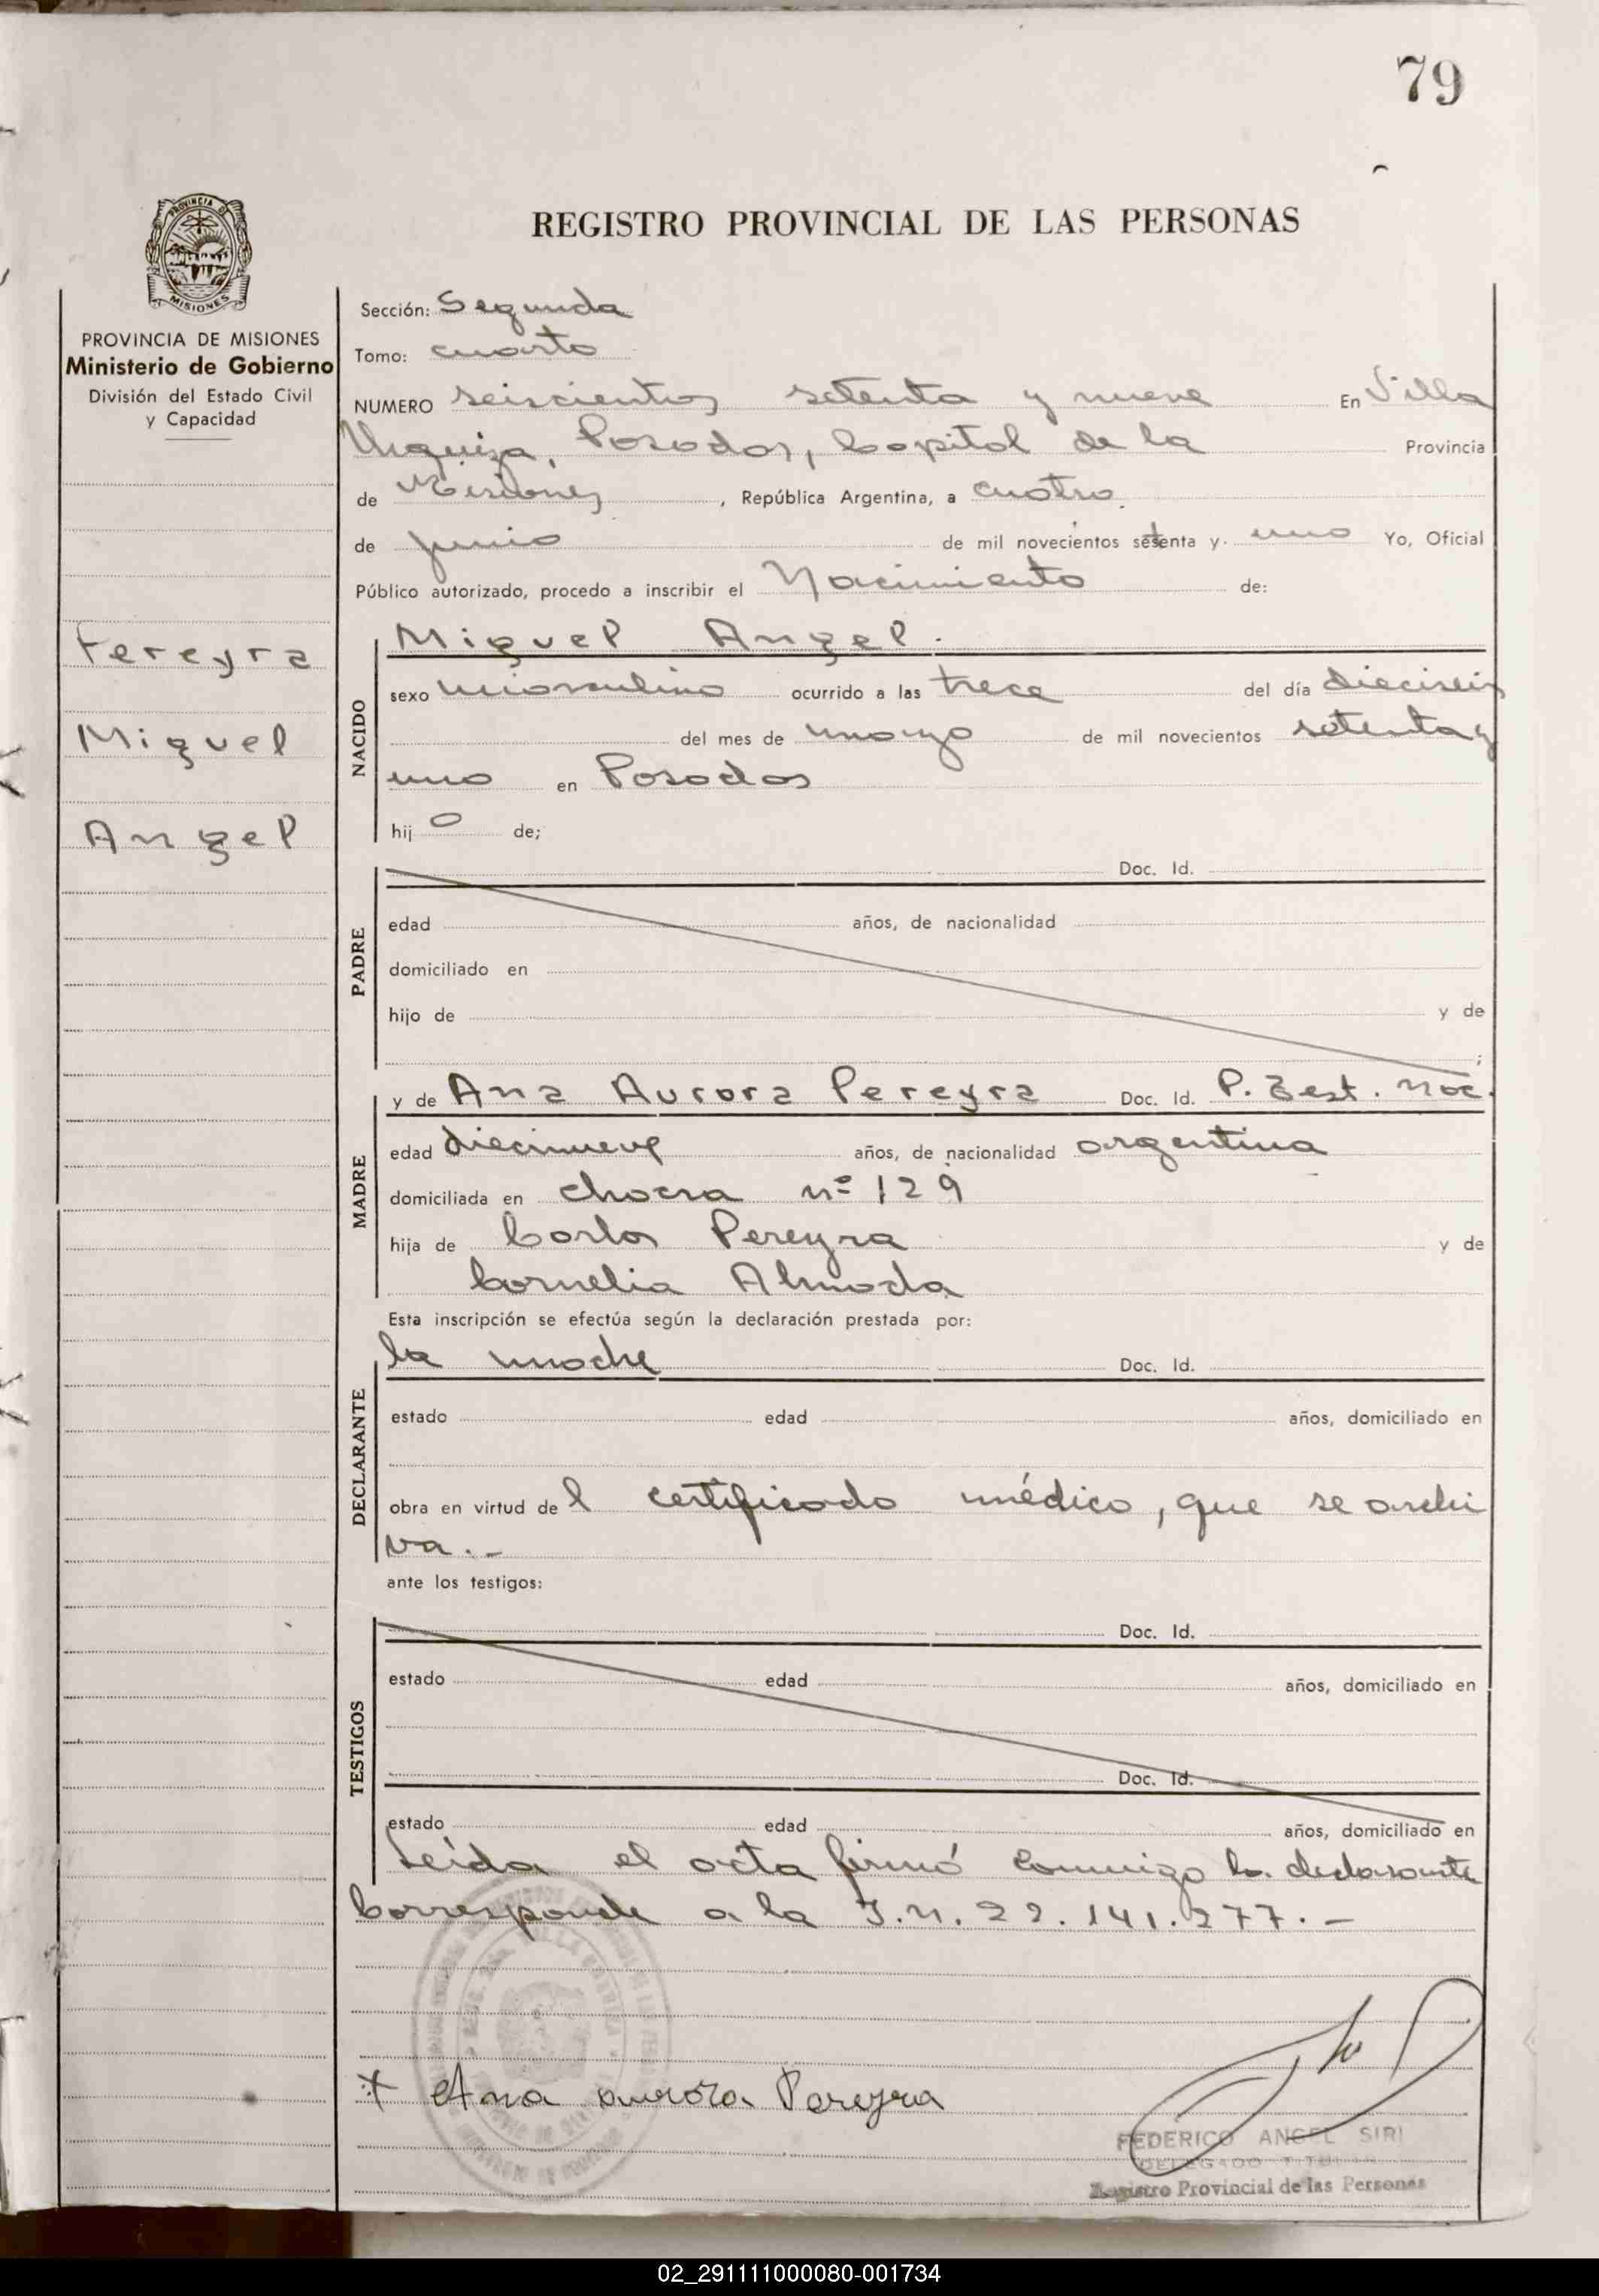 79
REGISTRO PROVINCIAL DE LAS PERSONAS
PROVINCIA DE
MISIONES
PROVINCIA DE MISIONES
Ministerio de Gobierno
División del Estado Civil
y Capacidad
Pereyra
Miguel
Angel
Sección: Segunda
Tomo: cuarto
NUMERO seiscientos setenta y nueve En Villa
Urquiza, Posadas, Capital de la Provincia
de Misiones, República Argentina, a cuatro
de junio de mil novecientos setenta y uno Yo, Oficial
Público autorizado, procedo a inscribir el Nacimiento de:
NACIDO
Miguel Angel.
sexo masculino ocurrido a las trece del día dieciseis
del mes de marzo de mil novecientos setenta y
uno en Posadas
hij o de;
PADRE
Doc. Id.
edad años, de nacionalidad
domiciliado en
hijo de y de
;
MADRE
y de Ana Aurora Pereyra Doc. Id. P. Best. Nac.
edad diecinueve años, de nacionalidad argentina
domiciliada en chacra nº 129
hija de Carlos Pereyra y de
Cornelia Almada
Esta inscripción se efectúa según la declaración prestada por:
DECLARANTE
la madre Doc. Id.
estado edad años, domiciliado en
obra en virtud de l certificado médico, que se archi
va.-
ante los testigos:
TESTIGOS
Doc. Id.
estado edad años, domiciliado en
Doc. Id.
estado edad años, domiciliado en
Leída el acta firmó conmigo la declarante
Corresponde a la I.N. 22.141.277.-
Ana aurora Pereyra
FEDERICO ANGEL SIRI
DELEGADO TITULAR
Registro Provincial de las Personas
02_291111000080-001734